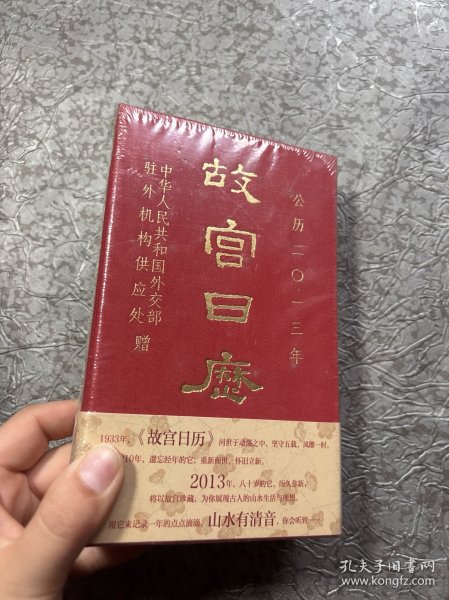 公历二〇一三年
故宫日历
中华人民共和国外交部
驻外机构供应处 赠
1933年，《故宫日历》问世于动荡之中，坚守五载，风靡一时。
10年，遗忘经年的它，重新面世，怀旧立新。
2013年，八十岁的它，历久弥新，
将以故宫珍藏，为你展现古人的山水生活与理想。
用它来记录一年的点点滴滴，山水有清音，你会听到……
孔夫子旧书网
www.kongfz.com